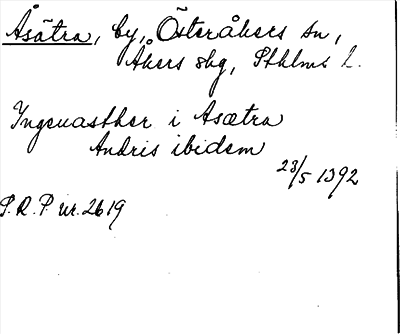 Åsätra, by, Österåkers sn,
Åkers skg, Sthlms l.
Ingeuasther i Asætra
Andris ibidem
23/5 1392
S.R.P. nr. 2619